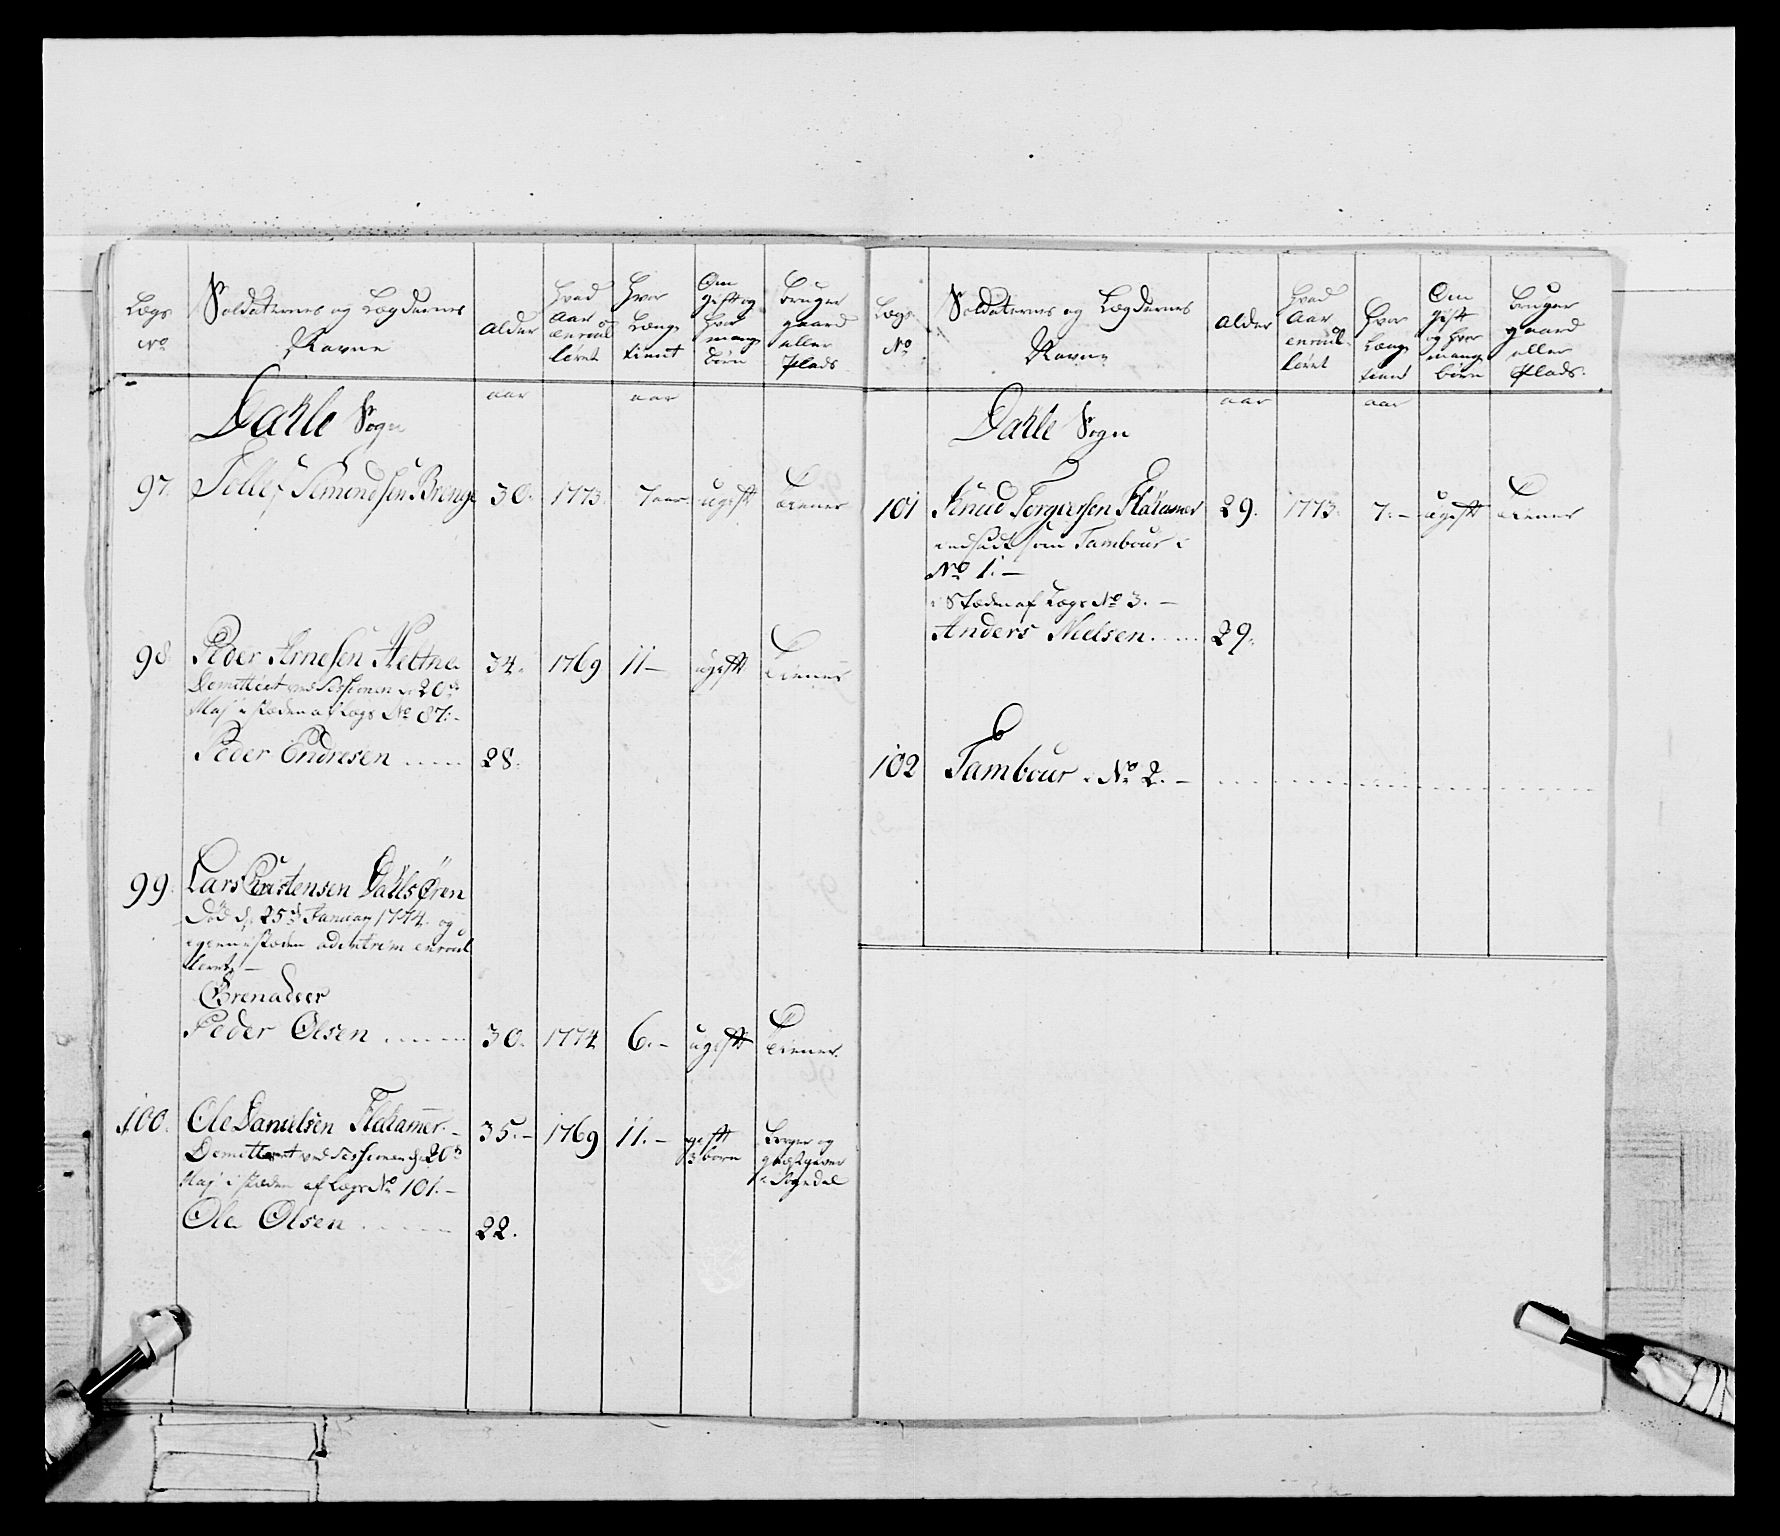 Lægs No
Soldaternes og Lægdernes Navne
alder
Hvad Aar enroulleret
Hvor Længe tient
Om gift og hvor mange børn
bruger gaard eller Plads
aar aar
Dahle Sogn
97. Tollef Semundsen Brenge 30. 1773. 7 aar ugift Tiener
98 Peder Arnesen Heltne 34. 1769 11 — ugift Tiener
Demitteret ved Sessionen d. 20de
Maj i stæden af Lægs No 87. -
Peder Endresen ..... 28.
99. Lars Christensen Dahls Øren
Død d. 25de Januar 1774. og
igien i stæden enroul
leret —
Grenadeer
Peder Olsen ...... 30. 1774 6. — ugift Tiener
100. Ole Danielsen Flakamer. — 35. — 1769 11. — gift 3 børn Borger og giæstgiver i Sogndal
Demitteret ved Sessionen d. 20de
Maj i stæden af Lægs No 101. —
Ole Olsen ...... 22.
Lægs No
Soldaternes og Lægdernes Navne
alder
Hvad Aar enroulleret
Hvor Længe tient
Om gift og hvor mange børn
bruger gaard eller Plads.
aar aar
Dahle Sogn
101 Knud Torgersen Flakamer 29. 1773. 7. — ugift Tiener
indsadt som Tambour i
No 1. —
i Stæden af Lægs No 3. —
Anders Nielsen ..... 29.
102 Tambour i No 2. —